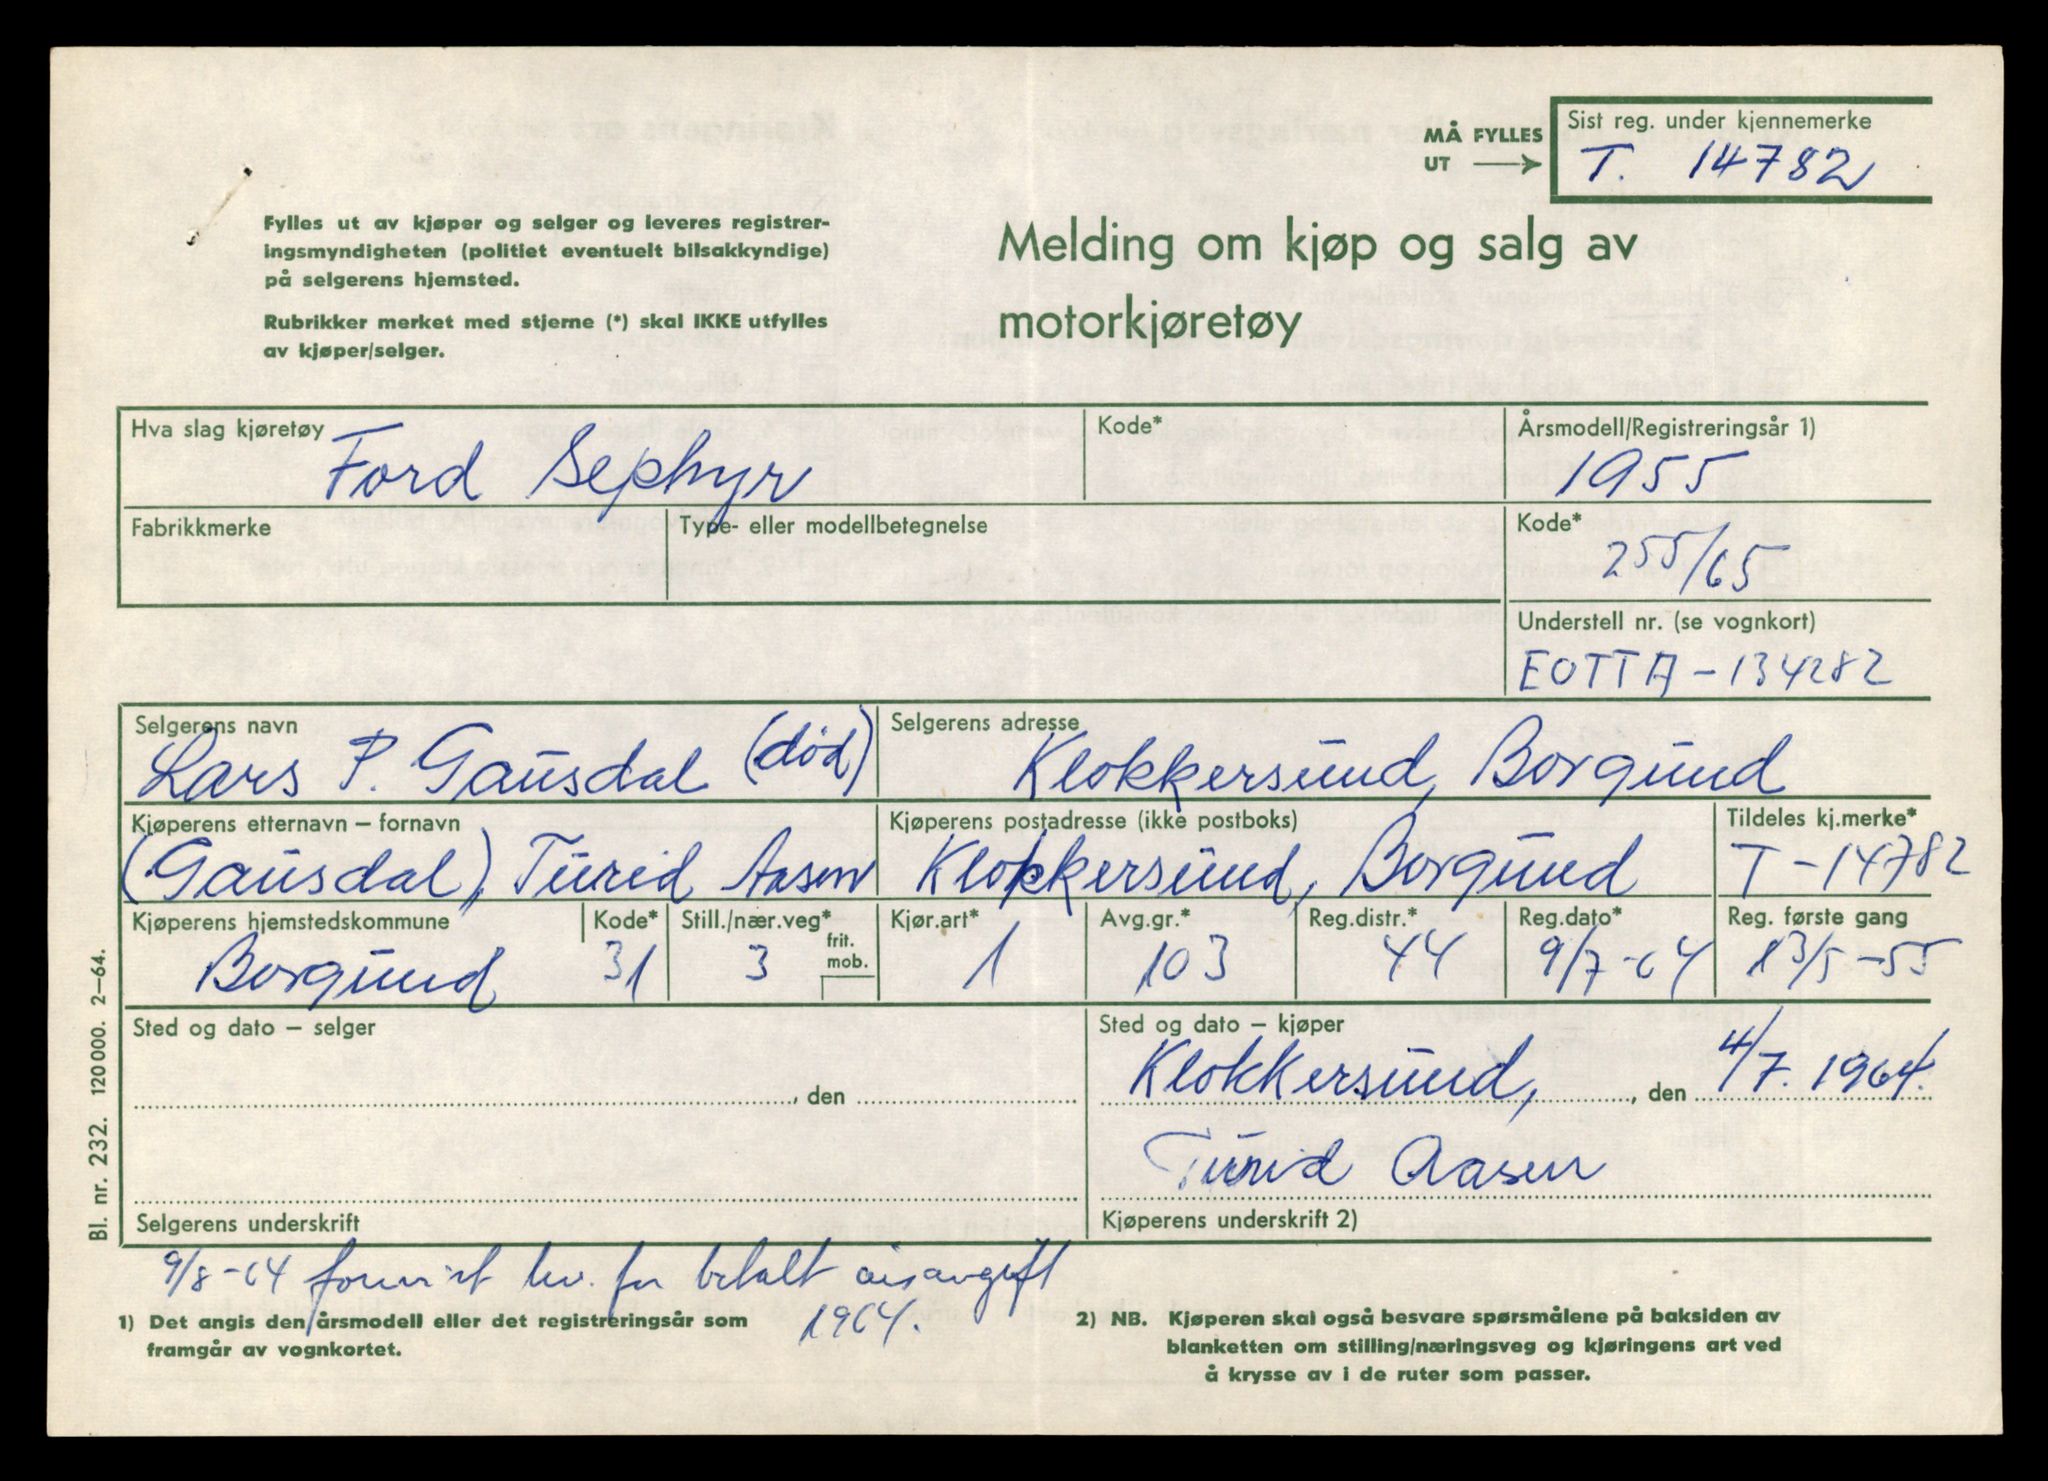 MÅ FYLLES UT
Sist reg. under kjennemerke
T. 14782
Fylles ut av kjøper og selger og leveres registrer-
ingsmyndigheten (politiet eventuelt bilsakkyndige)
på selgerens hjemsted.
Rubrikker merket med stjerne (*) skal IKKE utfylles
av kjøper/selger.
Melding om kjøp og salg av
motorkjøretøy
Hva slag kjøretøy
Ford Sephyr
Kode*
Årsmodell/Registreringsår 1)
1955
Fabrikkmerke
Type- eller modellbetegnelse
Kode*
255/65
Understell nr. (se vognkort)
EOTTA - 134282
Selgerens navn
Lars P. Gausdal (død)
Selgerens adresse
Klokkersund, Borgund
Kjøperens etternavn – fornavn
(Gausdal), Turid Aasen
Kjøperens postadresse (ikke postboks)
Klokkersund, Borgund
Tildeles kj.merke*
T - 14782
Kjøperens hjemstedskommune
Borgund
Kode*
31
Still./nær.veg*
3
frit.
mob.
Kjør.art*
1
Avg.gr.*
103
Reg.distr.*
44
Reg.dato*
9/7-64
Reg. første gang
13/5-55
Sted og dato – selger
, den
Selgerens underskrift
Sted og dato – kjøper
Klokkersund, , den 4/7. 1964.
Turid Aasen
Kjøperens underskrift 2)
Bl. nr. 232. 120 000. 2–64.
9/8-64 forevist kv. for betalt årsavgift
1964.
1) Det angis den årsmodell eller det registreringsår som
framgår av vognkortet.
2) NB. Kjøperen skal også besvare spørsmålene på baksiden av
blanketten om stilling/næringsveg og kjøringens art ved
å krysse av i de ruter som passer.